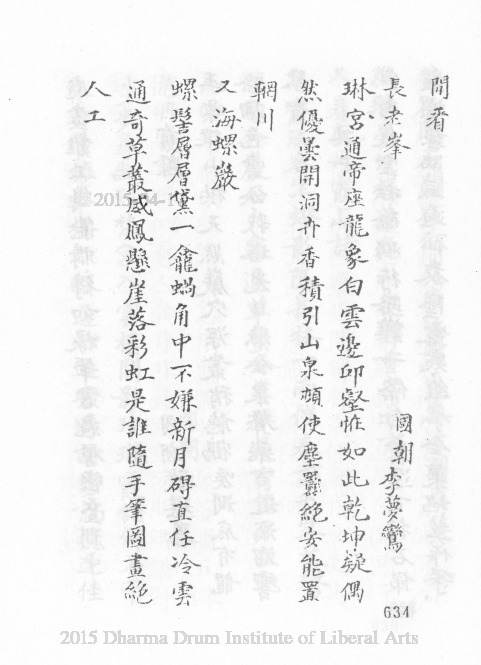 閒看
長老峯
國朝李夢鸞
琳宮通帝座龍象白雲邊卬壑惟如此乾坤疑偶
然優曇開洞卉香積引山泉頓使塵囂絕安能置
輞川
又海螺巖
螺髻層層黛一龕蝸角中不嫌新月碍直任冷雲
通奇草叢威鳳懸崖落彩虹是誰隨手筆圖畫絕
人工
634
2015 Dharma Drum Institute of Liberal Arts